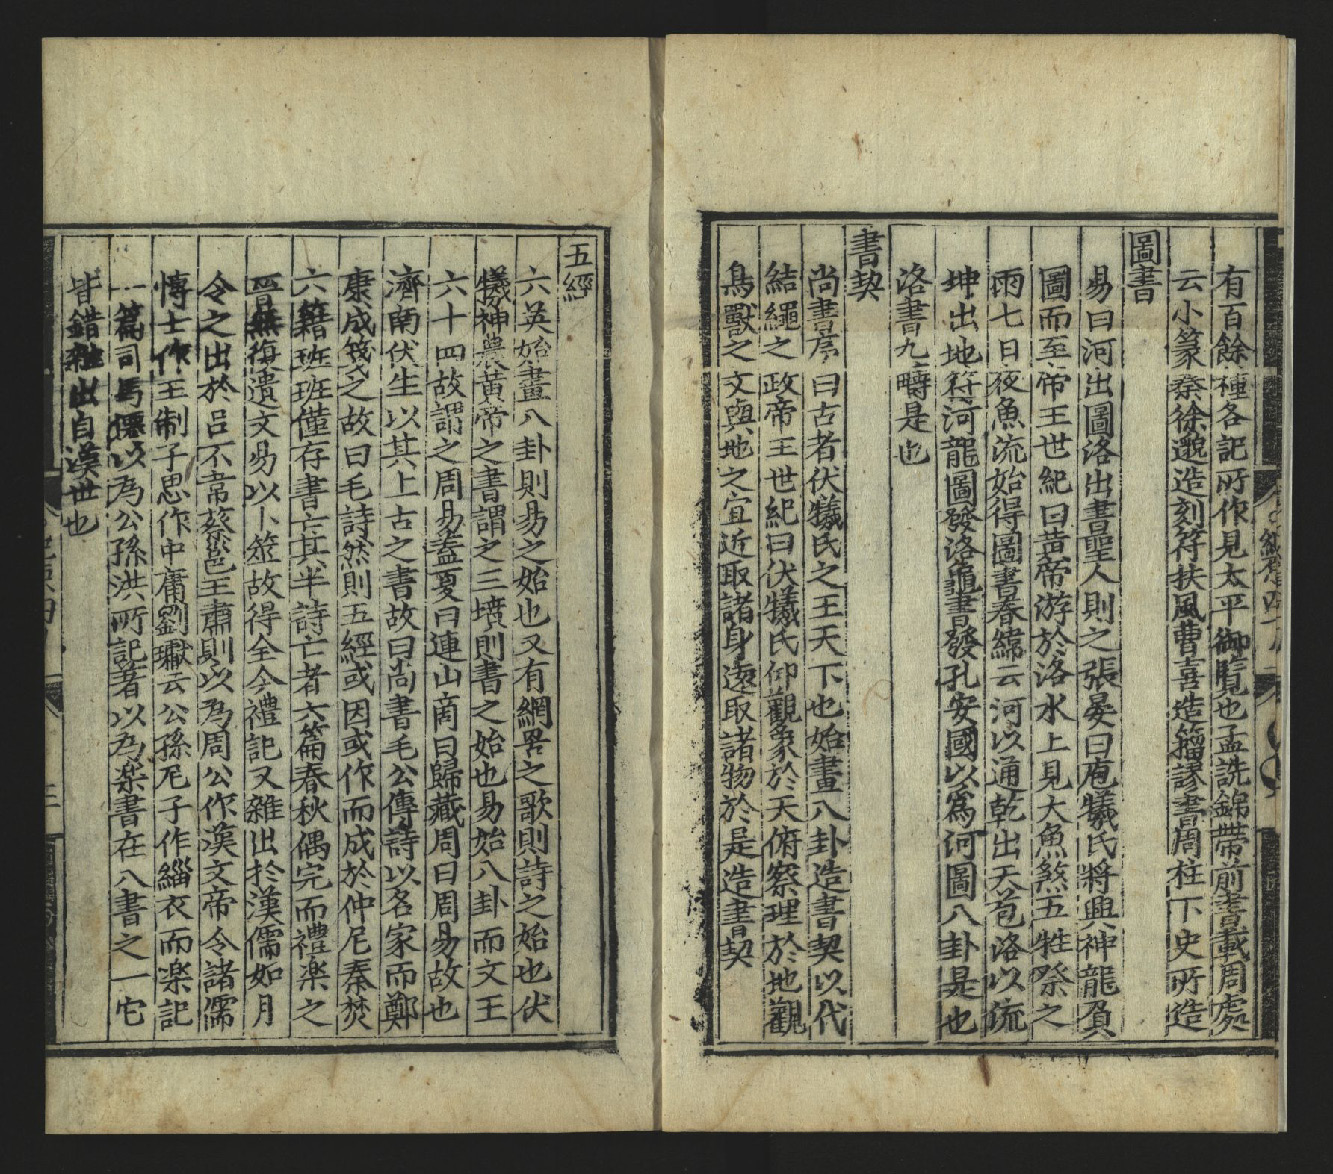 有百餘種各記所作見太平御覽也孟詵錦帶前書載周處
云小篆蔡徐邈造刻符扶風曹喜造籀謬書周柱下史所造
圖書
易曰河出圖洛出書聖人則之張晏曰庖犧氏將興神龍負
圖而至帝王世紀曰黃帝游於洛水上見大魚煞五牲祭之
雨七日夜魚流始得圖書春緯云河以通乾出天苞洛以流
坤出地符河龍圖發洛龜書發孔安國以為河圖八卦是也
洛書九疇是也
書契
尚書序曰古者伏犧氏之王天下也始畫八卦造書契以代
結繩之政帝王世紀曰伏犧氏仰觀象於天俯察理於地觀
鳥獸之文與地之宜近取諸身遠取諸物於是造書契
五經
六吳始畫八卦則易之始也又有網罟之歌則詩之始也伏
犧神農黃帝之書謂之三墳則書之始也易始八卦而文王
六十四故謂之周易蓋夏曰連山商曰歸藏周曰周易故也
濟南伏生以其上古之書故曰尚書毛公傳詩以名家而鄭
康成箋之故曰毛詩然則五經或因或作而成於仲尼秦焚
六籍班班僅存書亡其半詩亡者六篇春秋偶完而禮樂之
書無復遺文易以卜筮故得全今禮記又雜出於漢儒如月
令之出於呂不韋蔡邕王肅則以為周公作漢文帝令諸儒
博士作王制子思作中庸劉瓛云公孫尼子作緇衣而樂記
一篇司馬遷以為公孫洪所記著以為樂書在八書之一它
皆錯雜出自漢世也